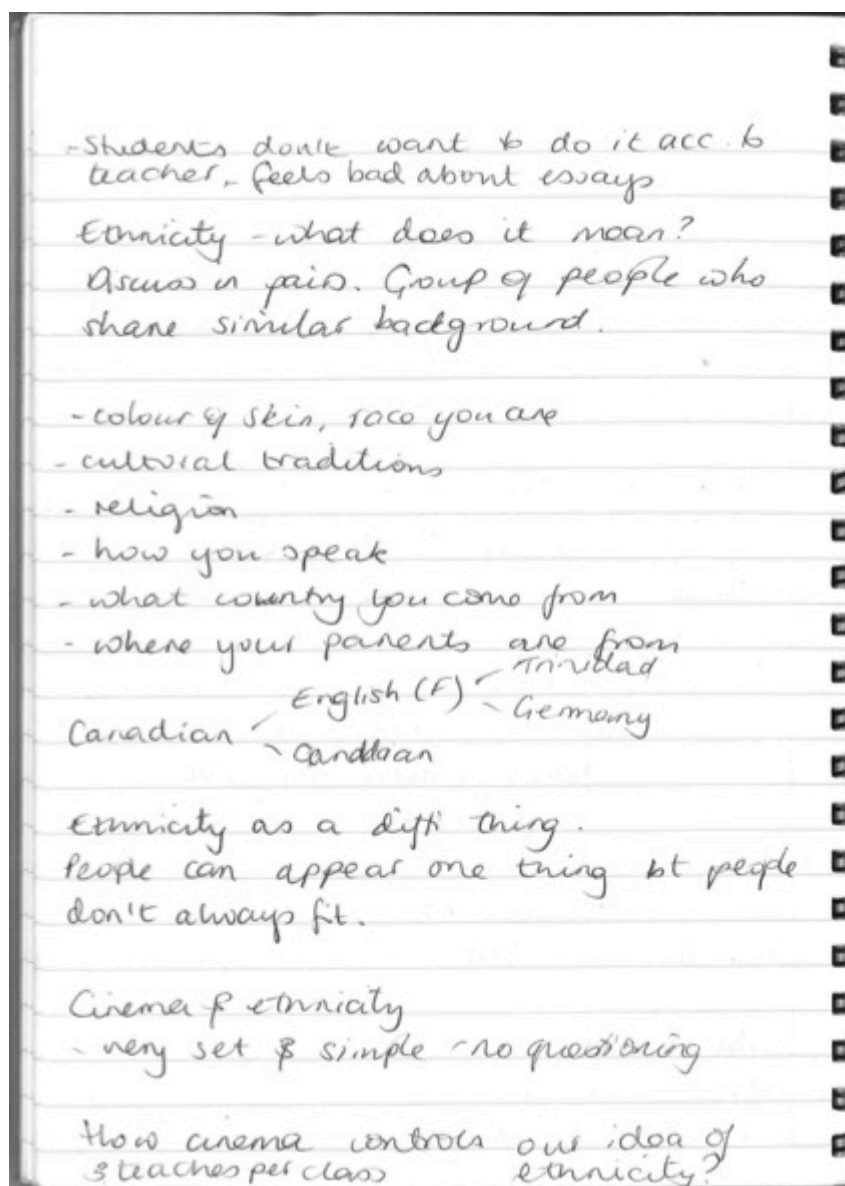 - Students don't want to do it acc. to
teacher, - feels bad about essays
Ethnicity - what does it mean?
Discuss in pairs. Group of people who
share similar background.
- colour of skin, race you are
- cultural traditions
- religion
- how you speak
- what country you come from
- where your parents are from
Trinidad
English (F)
Germany
Canadian
Canddian
Ethnicity as a diffi thing.
People can appear one thing bt people
don't always fit.
Cinema & ethnicity
- very set & simple - no questioning
How cinema controls our idea of
ethnicity?
3 teaches per class